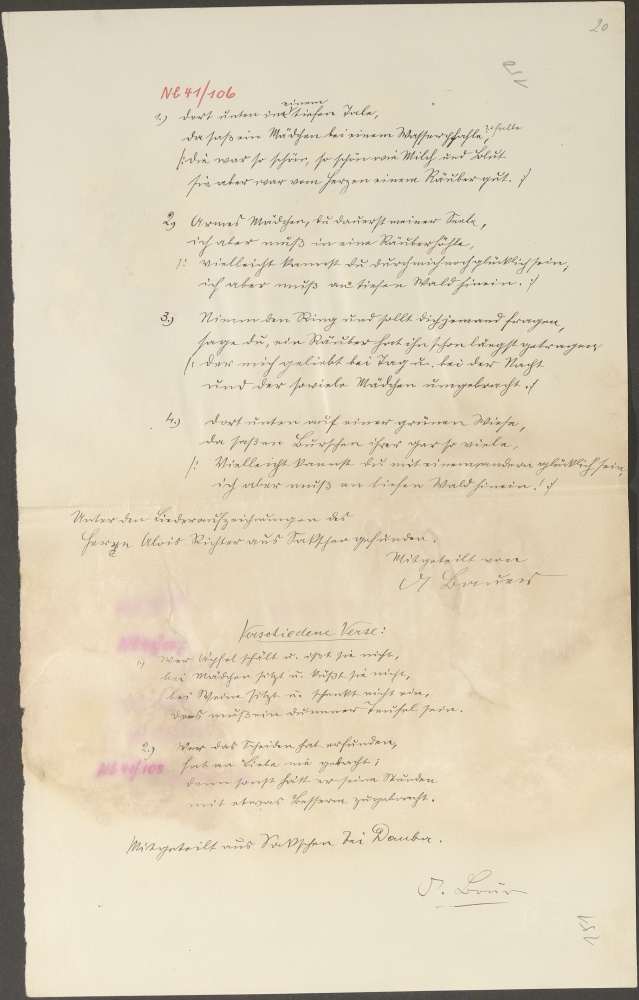 20
151
Nl 41/106
1.) Dort unten in einem tiefen Tale,
da saß ein Mädchen bei einem Wasserpfahle,
|: die war so schön, so schön wie Milch und Blut
sie aber war vom Herzen einem Räuber gut. :|
2.) Armes Mädchen, du dauerst meiner Seele,
ich aber muß in eine Räuberhöhle,
|: vielleicht kannst du durch mich noch glücklich sein,
ich aber muß an tiefen Wald hinein. :|
3.) Nimm den Ring und sollt dich jemand fragen,
sage du, ein Räuber hat ihn schon längst getragen
|: der mich geliebt bei Tag u. bei der Nacht
und der soviele Mädchen umgebracht. :|
4.) Dort unten auf einer grünen Wiese,
da saßen Burschen ihrer gar so viele,
|: Vielleicht kannst du mit einem andern glücklich sein,
ich aber muß an tiefen Wald hinein! :|
Unter den Liederaufzeichnungen des
Herrn Alois Richter aus Sakschen gefunden.
Mitgeteilt von
Verschiedene Verse:
1.) Wer Äpfel schält u. ißt sie nicht,
bei Mädchen sitzt u. küßt sie nicht,
bei Weine sitzt u. schenkt nicht ein,
das muß ein dummer Teufel sein.
2.) Wer das Scheiden hat erfunden,
hat an Liebe nie gedacht;
denn sonst hätt er seine Stunden
mit etwas Besserem zugebracht.
Nl 41/105
Mitgeteilt aus Sakschen bei Dauba.
151